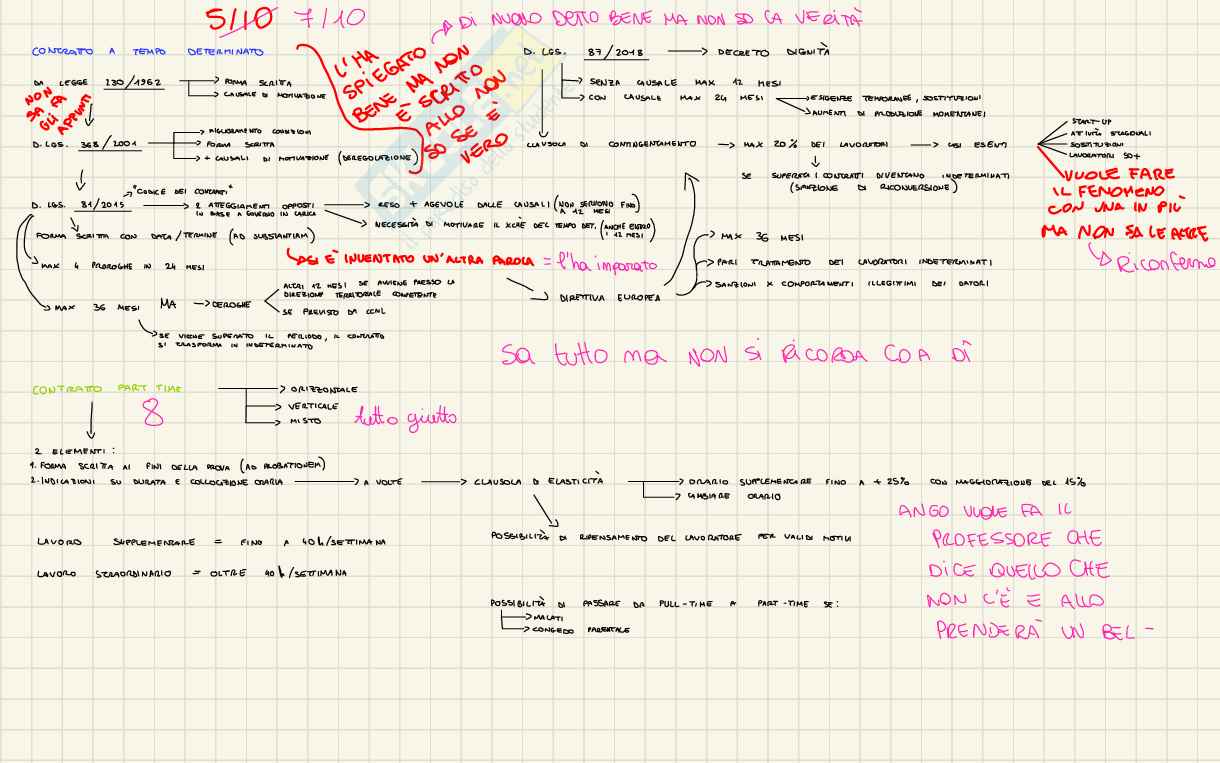 5/10 7/10
DI NUOVO DETTO BENE MA NON SO LA VERITÀ
CONTRATTO A TEMPO DETERMINATO
L'HA
SPIEGATO
BENE MA NON
È SCRITTO
ALLO NON
SO SE È
VERO
DA LEGGE 130/1962
FORMA SCRITTA
CAUSALE DI MOTIVAZIONE
NON
SA FA
GLI
APPUNTI
D. LGS. 368/2001
MIGLIORAMENTO CONDIZIONI
FORMA SCRITTA
+ CAUSALI DI MOTIVAZIONE (DEREGOLAZIONE)
"CODICE DEI CONTRATTI"
D. LGS. 81/2015
2 ATTEGGIAMENTI OPPOSTI
IN BASE A GOVERNO IN CARICA
RESO + AGEVOLE DALLE CAUSALI (NON SERVONO FINO
A 12 MESI)
NECESSITÀ DI MOTIVARE IL XCHÈ DEL TEMPO DET. (ANCHE ENTRO
I 12 MESI)
FORMA SCRITTA CON DATA/TERMINE (AD SUBSTANTIAM)
SI È INVENTATO UN'ALTRA PAROLA = l'ha imparato
MAX 4 PROROGHE IN 24 MESI
MAX 36 MESI MA DEROGHE
ALTRI 12 MESI SE AVVIENE PRESSO LA
DIREZIONE TERRITORIALE COMPETENTE
SE PREVISTO DA CCNL
SE VIENE SUPERATO IL PERIODO, IL CONTRATTO
SI TRASFORMA IN INDETERMINATO
D. LGS. 87/2018 DECRETO DIGNITÀ
SENZA CAUSALE MAX 12 MESI
CON CAUSALE MAX 24 MESI
ESIGENZE TEMPORANEE, SOSTITUZIONI
AUMENTI DI PRODUZIONE MOMENTANEI
CLAUSOLA DI CONTINGENTAMENTO MAX 20% DEI LAVORATORI CASI ESENTI
START-UP
ATTIVITÀ STAGIONALI
SOSTITUZIONI
LAVORATORI 50+
SE SUPERATA I CONTRATTI DIVENTANO INDETERMINATI
(SANZIONE DI RICONVERSIONE)
VUOLE FARE
IL FENOMENO
CON UNA IN PIÙ
MA NON SA LE ALTRE
Riconfermo
DIRETTIVA EUROPEA
MAX 36 MESI
PARI TRATTAMENTO DEI LAVORATORI INDETERMINATI
SANZIONI X COMPORTAMENTI ILLEGITTIMI DEI DATORI
Sa tutto ma NON SI RICORDA COA DÌ
CONTRATTO PART TIME
8
ORIZZONTALE
VERTICALE
MISTO
tutto giusto
2 ELEMENTI:
1. FORMA SCRITTA AI FINI DELLA PROVA (AD PROBATIONEM)
2. INDICAZIONI SU DURATA E COLLOCAZIONE ORARIA A VOLTE CLAUSOLA DI ELASTICITÀ
ORARIO SUPPLEMENTARE FINO A + 25% CON MAGGIORAZIONE DEL 15%
CAMBIARE ORARIO
POSSIBILITÀ DI RIPENSAMENTO DEL LAVORATORE PER VALIDI MOTIVI
LAVORO SUPPLEMENTARE = FINO A 40h/SETTIMANA
LAVORO STRAORDINARIO = OLTRE 40h/SETTIMANA
POSSIBILITÀ DI PASSARE DA FULL-TIME A PART-TIME SE:
MALATI
CONGEDO PARENTALE
ANGO VUOLE FA IL
PROFESSORE CHE
DICE QUELLO CHE
NON C'È E ALLO
PRENDERÀ UN BEL -